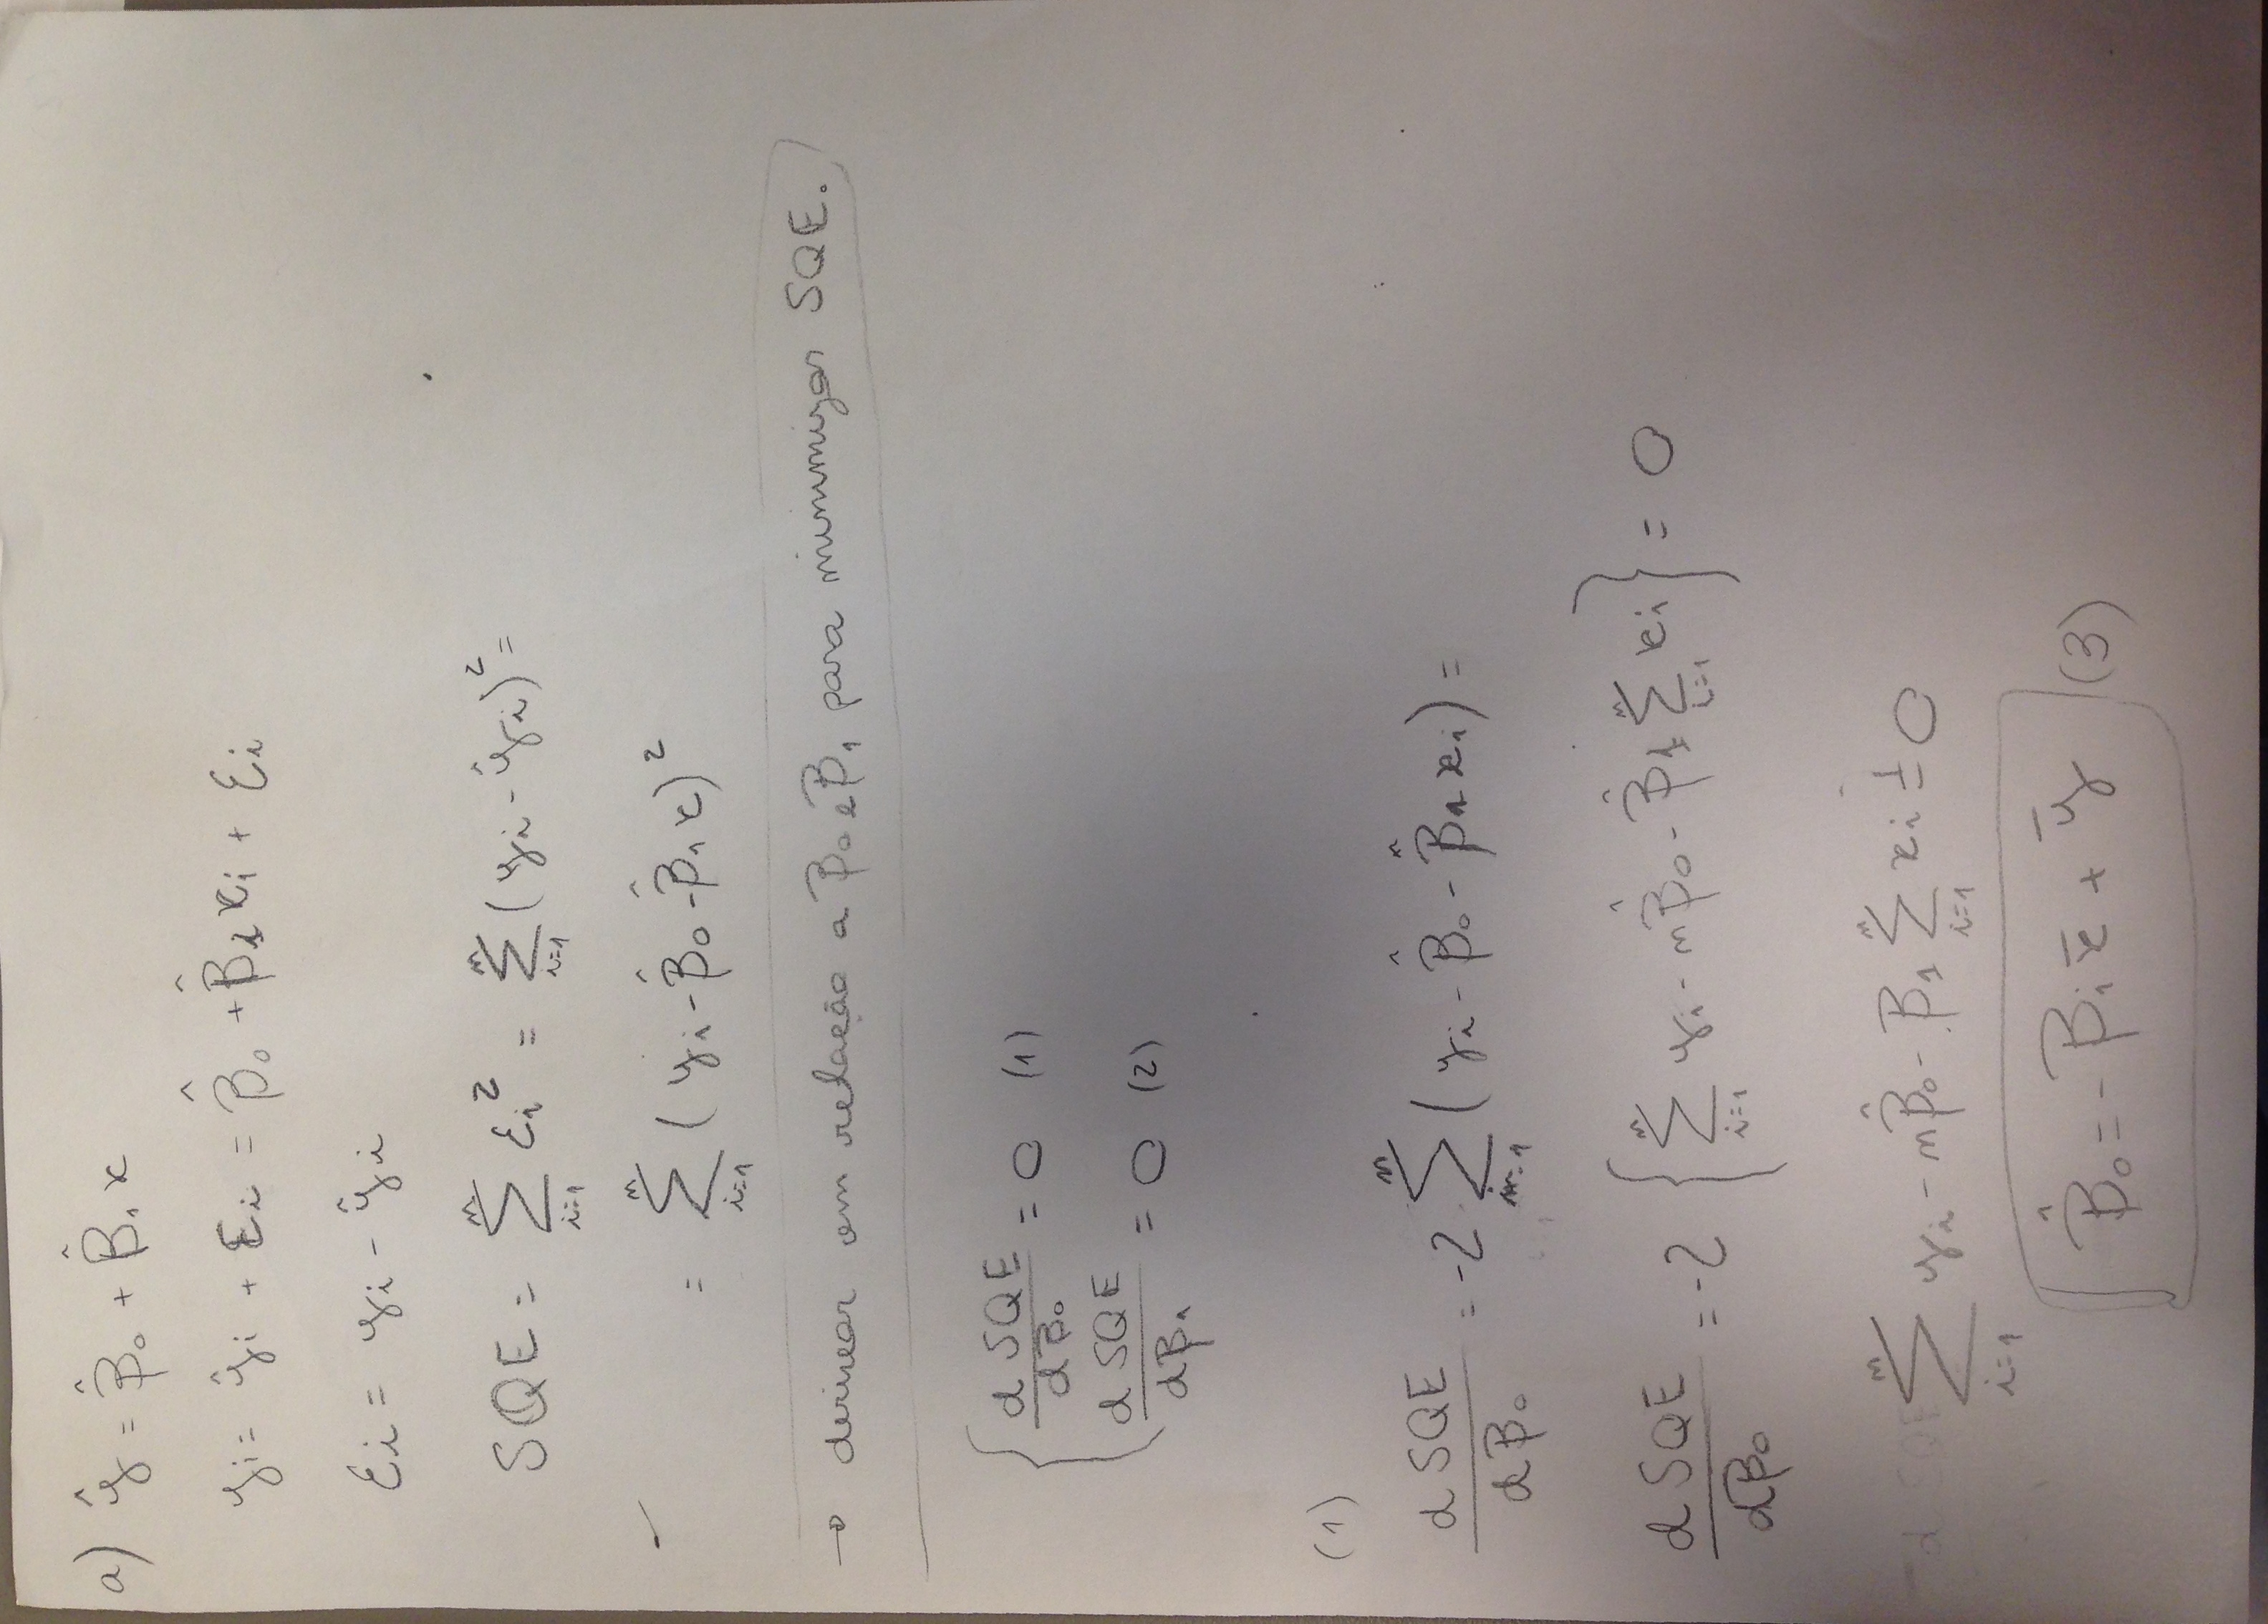 a) ŷ = β̂₀ + β̂₁ x
yi = ŷi + εi = β̂₀ + β̂₁ xi + εi
εi = yi - ŷi
SQE = Σ_{i=1}^{n} εi² = Σ_{i=1}^{n} (yi - ŷi)² =
= Σ_{i=1}^{n} (yi - β̂₀ - β̂₁ x)²
→ derivar em relação a β₀ e β₁ para minimizar SQE.
{ d SQE / dβ₀ = 0 (1)
d SQE / dβ₁ = 0 (2)
(1)
d SQE / dβ₀ = -2 Σ_{i=1}^{n} (yi - β̂₀ - β̂₁ xi) =
d SQE / dβ₀ = -2 { Σ_{i=1}^{n} yi - nβ̂₀ - β̂₁ Σ_{i=1}^{n} xi } = 0
Σ_{i=1}^{n} yi - nβ̂₀ - β₁ Σ_{i=1}^{n} xi = 0
β̂₀ = - βi x̄ + ȳ (3)